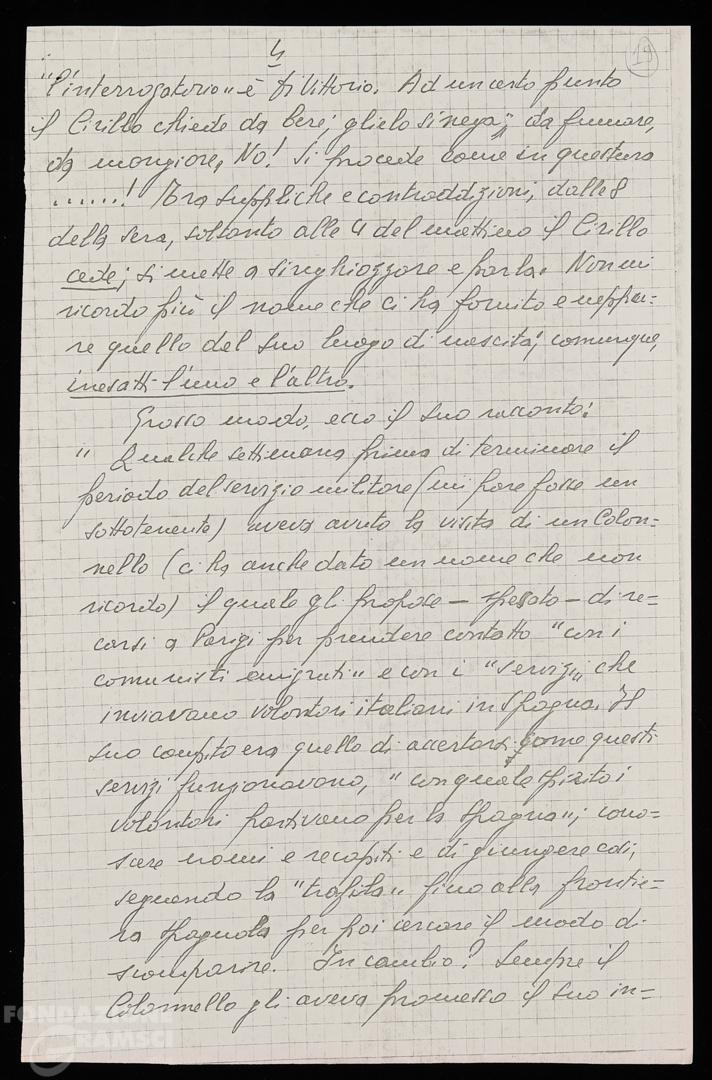 4
19
"l'interrogatorio" è Di Vittorio. Ad un certo punto
il Cirillo chiede da bere; glielo si nega; da fumare,
da mangiare, No! Si procede come in questura
......! Tra suppliche e contraddizioni, dalle 8
della sera, soltanto alle 4 del mattino il Cirillo
cede; si mette a singhiozzare e parla. Non mi
ricordo più il nome che ci ha fornito e neppu=
re quello del suo luogo di nascita; comunque,
inesatti l'uno e l'altro.
Grosso modo, ecco il suo racconto:
" Qualche settimana prima di terminare il
periodo del servizio militare (mi pare fosse un
sottotenente) aveva avuto la visita di un Colon=
nello (ci ha anche dato un nome che non
ricordo) il quale gli propose — spesato — di re=
carsi a Parigi per prendere contatto "con i
comunisti emigrati" e con i "servizi" che
inviavano volontari italiani in Spagna. Il
suo compito era quello di accertarsi come questi
servizi funzionavano, "con quale spirito i
volontari partivano per la Spagna"; cono=
scere nomi e recapiti e di giungere così,
seguendo la "trafila" fino alla frontie=
ra spagnola per poi cercare il modo di
scomparire. In cambio? Sempre il
Colonnello gli aveva promesso il suo in=
FONDAZIONE
GRAMSCI